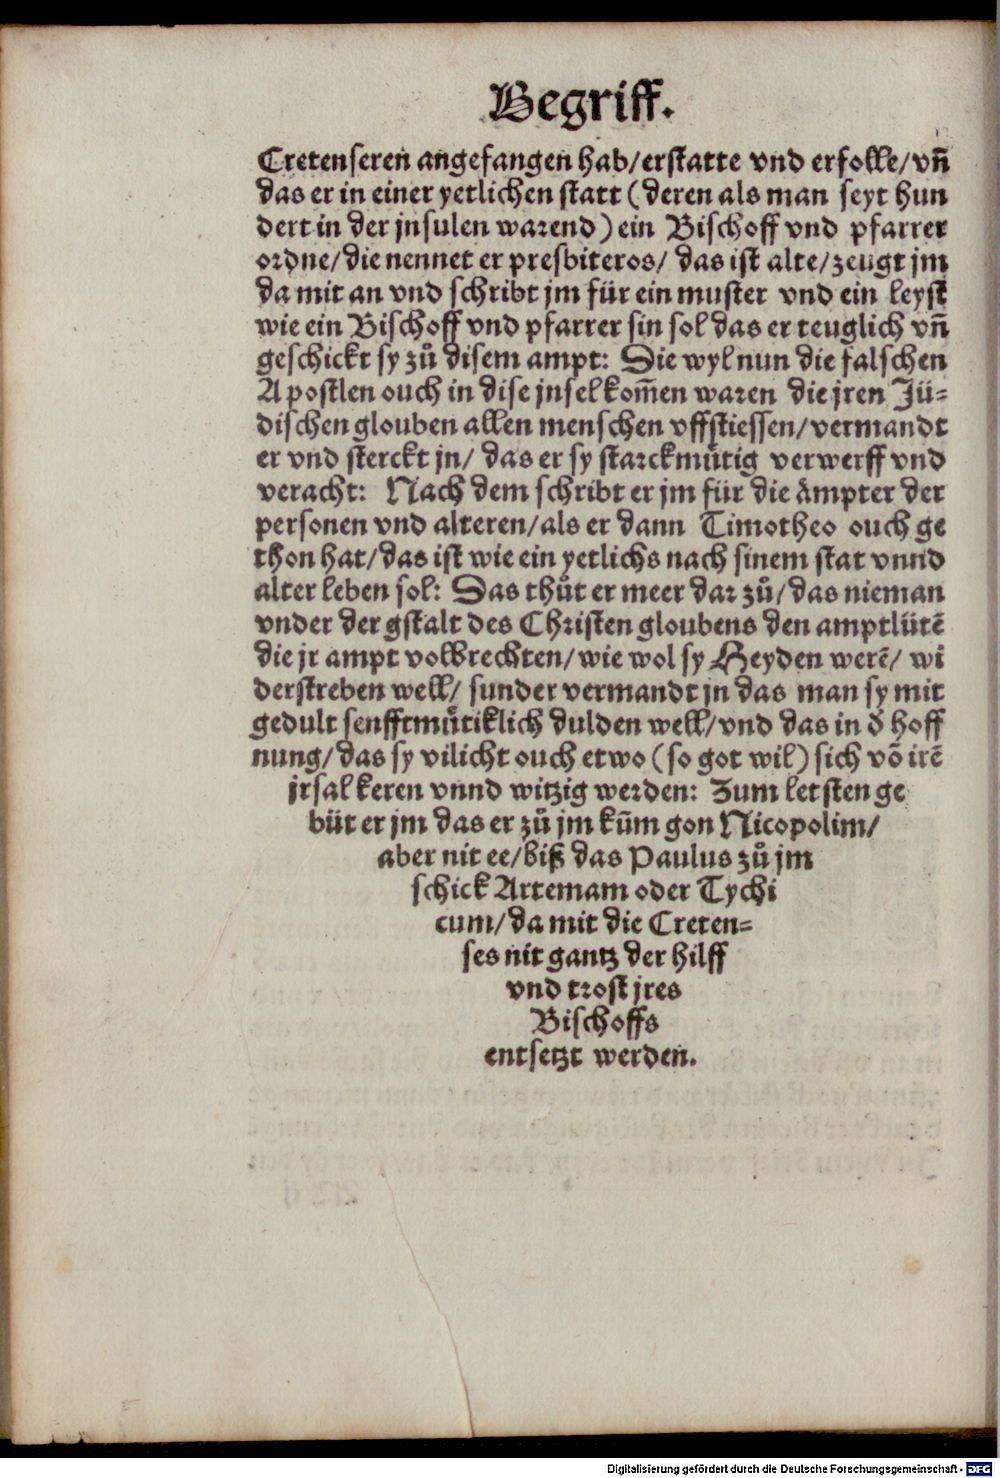 Begriff.
Cretenseren angefangen hab/erstatte vnd erfolle/vn̄
das er in einer yetlichen statt (deren als man seyt hun
dert in der jnsulen warend) ein Bischoff vnd pfarrer
ordne/die nennet er presbiteros/ das ist alte/zeugt jm
da mit an vnd schribt jm für ein muster vnd ein leyst
wie ein Bischoff vnd pfarrer sin sol das er teuglich vn̄
geschickt sy zů disem ampt: Die wyl nun die falschen
Apostlen ouch in dise jnsel kom̄en waren die jren Jü-
dischen glouben allen menschen vffstiessen/vermandt
er vnd sterckt jn/ das er sy starckmůtig verwerff vnd
veracht: Nach dem schribt er jm für die ämpter der
personen vnd alteren/als er dann Timotheo ouch ge
thon hat/das ist wie ein yetlichs nach sinem stat vnnd
alter leben sol: Das thůt er meer dar zů/das nieman
vnder der gstalt des Christen gloubens den amptlütē
die jr ampt volbrechten/wie wol sy Heyden werē/ wi
derstreben well/ sunder vermandt jn das man sy mit
gedult senfftmůtiklich dulden well/vnd das in d̄ hoff
nung/das sy vilicht ouch etwo (so got wil) sich vō irē
jrsal keren vnnd witzig werden: Zum letsten ge
büt er jm das er zů jm kūm gon Nicopolim/
aber nit ee/biß das Paulus zů jm
schick Artemam oder Tychi
cum/da mit die Creten-
ses nit gantz der hilff
vnd trost jres
Bischoffs
entsetzt werden.
Digitalisierung gefördert durch die Deutsche Forschungsgemeinschaft - DFG